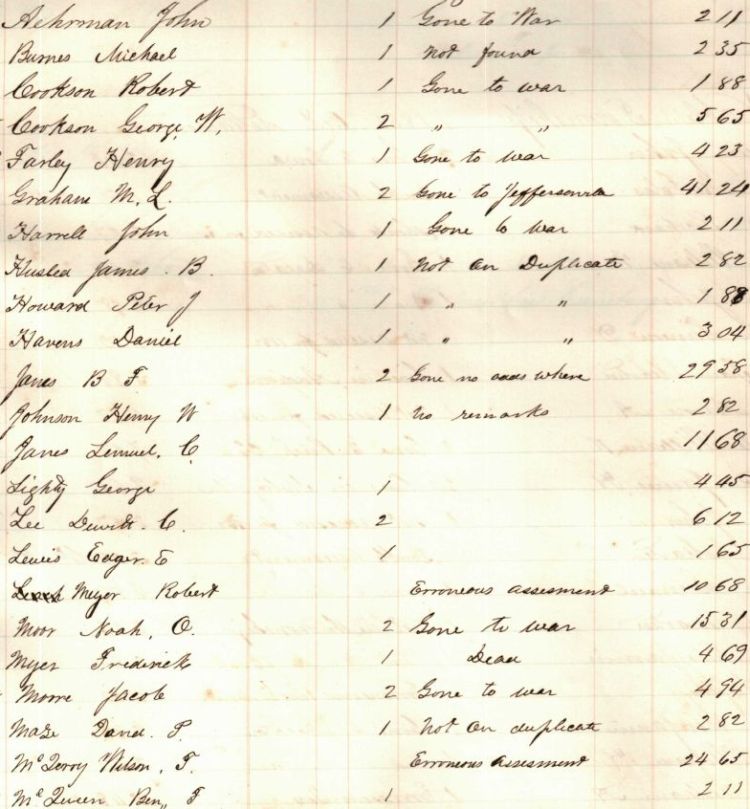 Aehrman John 1 Gone to War 2 11
Burnes Michael 1 Not found 2 35
Cookson Robert 1 Gone to war 1 88
Cookson George W. 2 " " 5 65
Farley Henry 1 Gone to war 4 23
Graham M. L. 2 Gone to Jeffersonville 41 24
Harrell John 1 Gone to war 2 11
James B. 1 Not on Duplicate 2 82
Howard Peter J 1 " " 1 88
Havens Daniel 1 " " 3 04
Janes B F 2 Gone no where 29 58
Johnson Henry W 1 No remarks 2 82
Janes Lemuel, C. 11 68
Lighty George 1 4 45
Lee Dewitt. C. 2 6 12
Lewis Edger. E 1 1 65
Meyer Robert Erroneous assesment 10 68
Moor Noah, O. 2 Gone to war 15 31
Myer Fredrick 1 Dead 4 69
Moore Jacob 2 Gone to war 4 94
Maze David. P. 1 Not on duplicate 2 82
Wilson, T. Erroneous assesment 24 65
McQueen Ben,, F 1 2 11